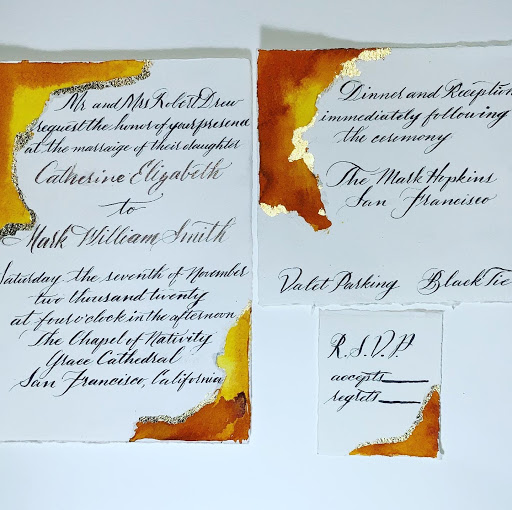 Mr. and Mrs Robert Drew
request the honor of your presence
at the marraige of their daughter
Catherine Elizabeth
to
Mark William Smith
Saturday the seventh of November
two thousand twenty
at four o'clock in the afternoon
The Chapel of Nativity
Grace Cathedral
San Francisco, California
Dinner and Reception
immediately following
the ceremony
The Mark Hopkins
San Francisco
Valet Parking Black Tie
R.S.V.P
accepts
regrets